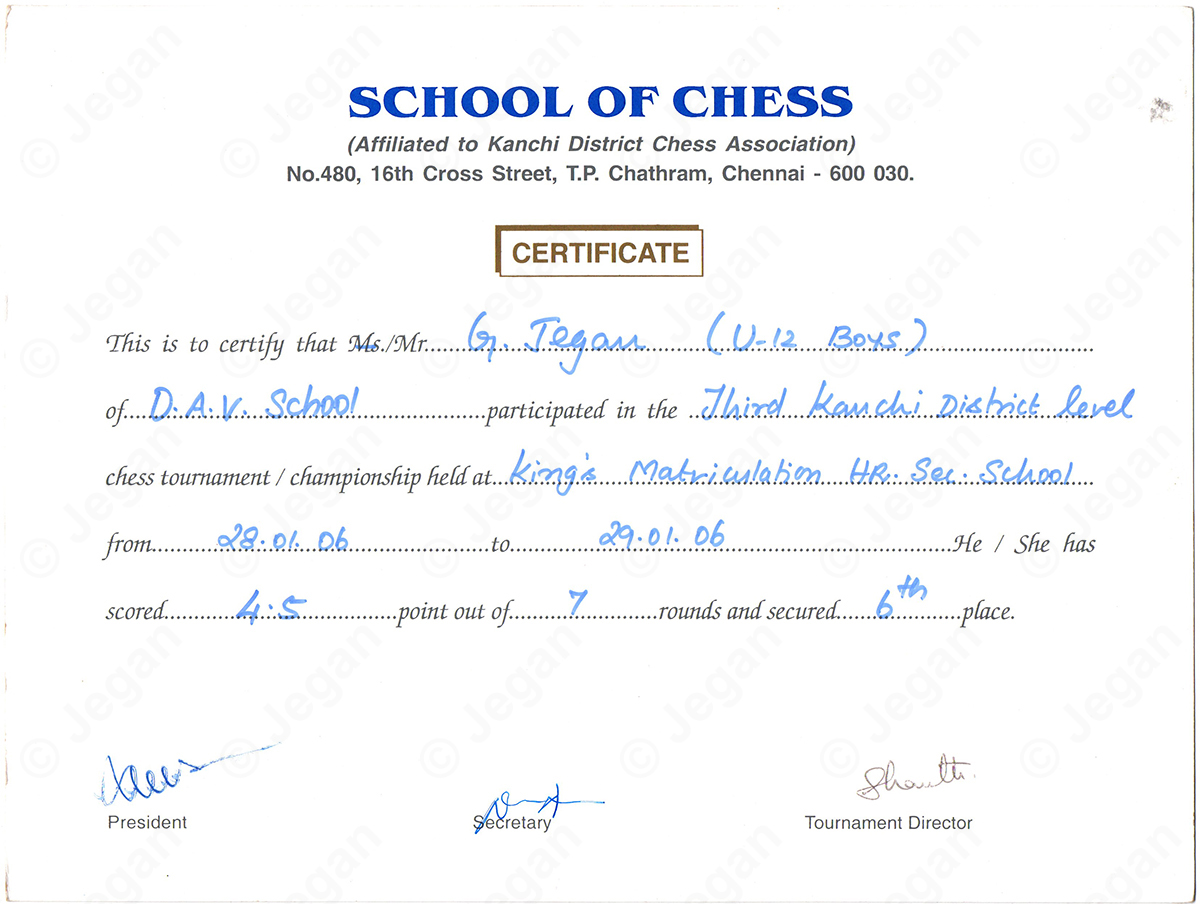 SCHOOL OF CHESS
(Affiliated to Kanchi District Chess Association)
No.480, 16th Cross Street, T.P. Chathram, Chennai - 600 030.
CERTIFICATE
This is to certify that Ms./Mr. G. Jegan (U-12 Boys)
of D.A.V. School participated in the Third Kanchi District level
chess tournament / championship held at King's Matriculation HR. Sec. School
from 28.01.06 to 29.01.06 He / She has
scored 4.5 point out of 7 rounds and secured 6th place.
President Secretary Tournament Director
© Jegan